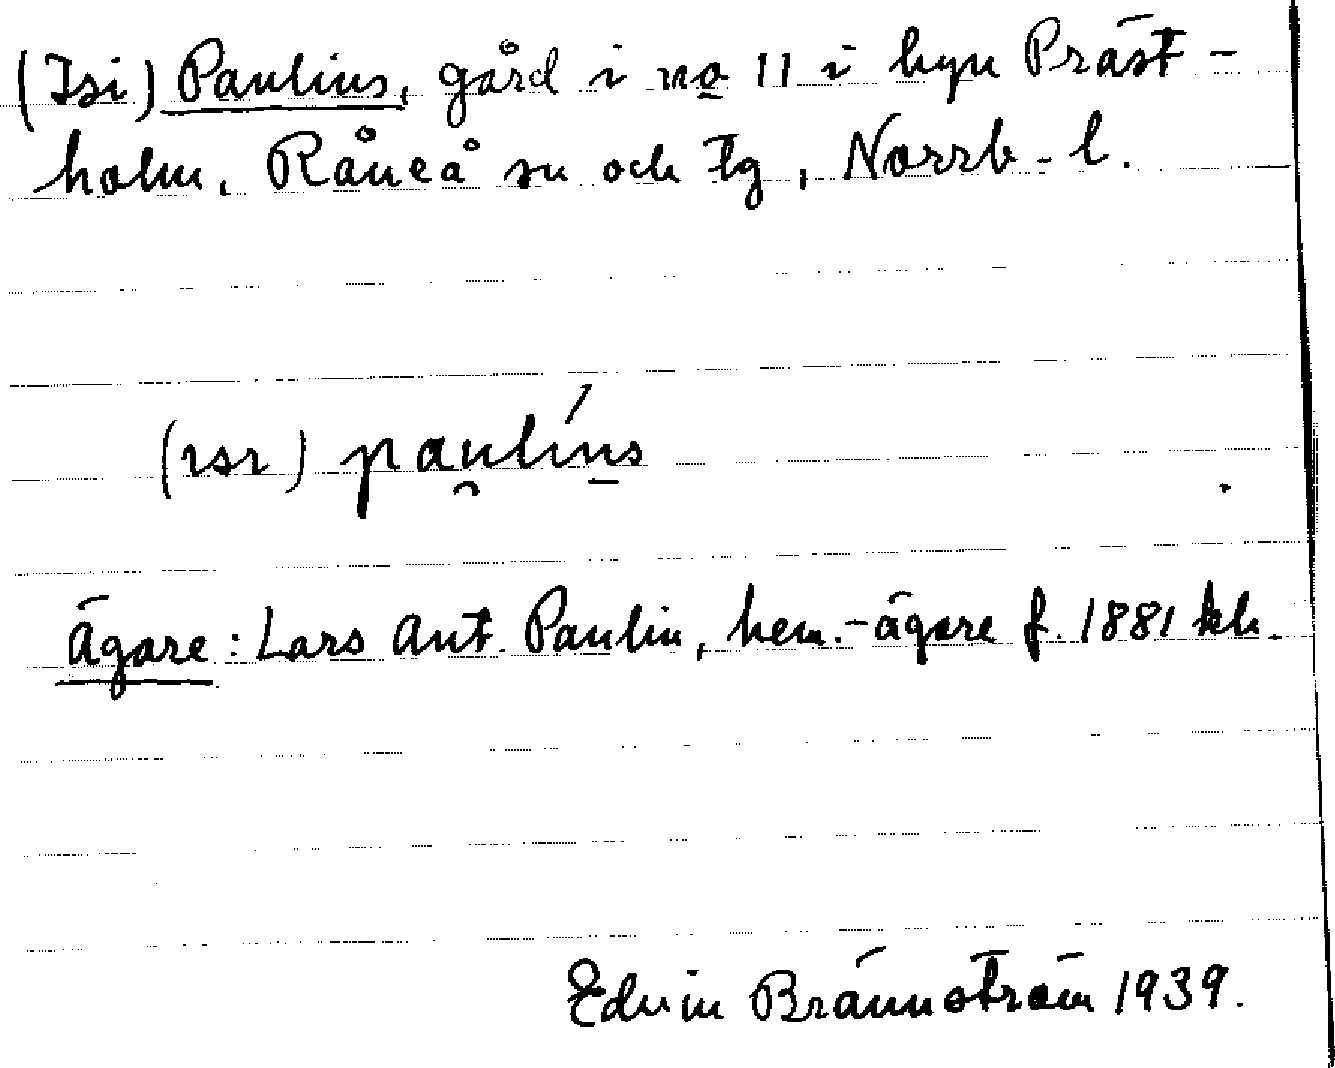 (Isi) Paulins, gård i no 11 i byn Präst-
holm, Råneå sn och tg, Norrb. l.
(ɪsɪ) pau̯líns
Ägare: Lars Ant. Paulin, hem.-ägare f. 1881 kh.
Edvin Brännström 1939.